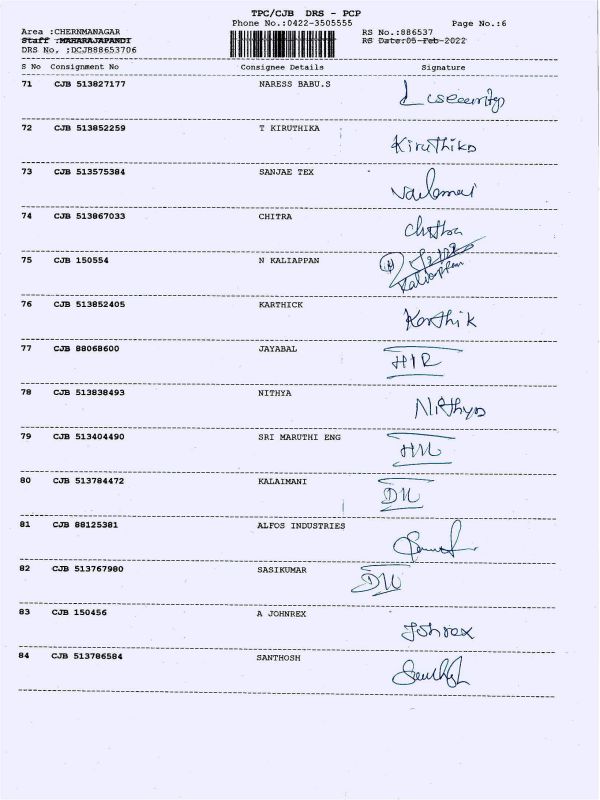 TPC/CJB DRS - PCP
Phone No.:0422-3505555 Page No.:6
Area :CHERNMANAGAR RS No.:886537
Staff :MAHARAJAPANDI RS Date:05-Feb-2022
DRS No. :DCJB88653706
S No Consignment No Consignee Details Signature
71 CJB 513827177 NARESS BABU.S
72 CJB 513852259 T KIRUTHIKA Kiruthika
73 CJB 513575384 SANJAE TEX
74 CJB 513867033 CHITRA Chitra
75 CJB 150554 N KALIAPPAN Kaliappan
76 CJB 513852405 KARTHICK Karthik
77 CJB 88068600 JAYABAL HIR
78 CJB 513838493 NITHYA Nithya
79 CJB 513404490 SRI MARUTHI ENG
80 CJB 513784472 KALAIMANI
81 CJB 88125381 ALFOS INDUSTRIES
82 CJB 513767980 SASIKUMAR
83 CJB 150456 A JOHNREX Johnrex
84 CJB 513786584 SANTHOSH